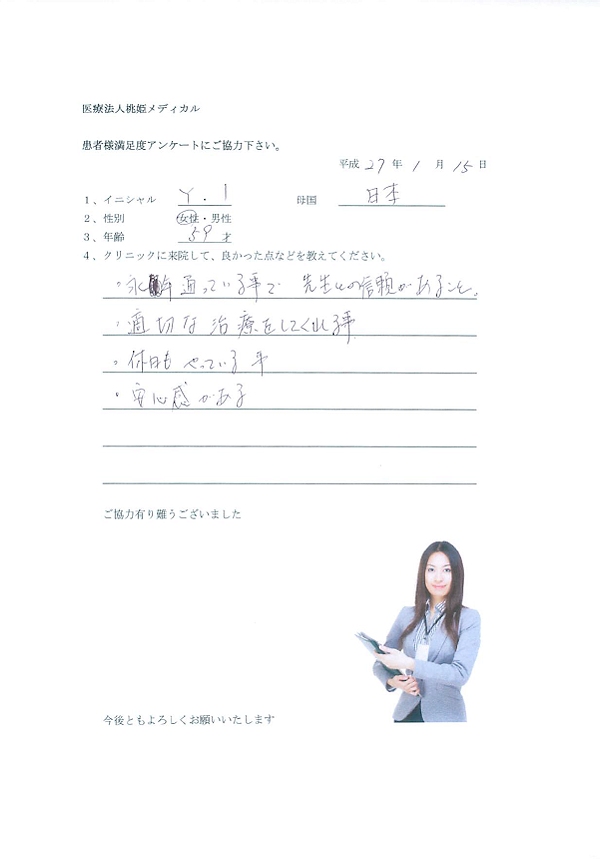 医療法人桃姫メディカル
患者様満足度アンケートにご協力下さい。
平成 27 年 1 月 15 日
1、イニシャル Y.I 母国 日本
2、性別 女性・男性
3、年齢 59才
4、クリニックに来院して、良かった点などを教えてください。
・永年通っている事で 先生との信頼があること。
・適切な治療をしてくれる事
・休日もやっている事
・安心感がある
ご協力有り難うございました
今後ともよろしくお願いいたします